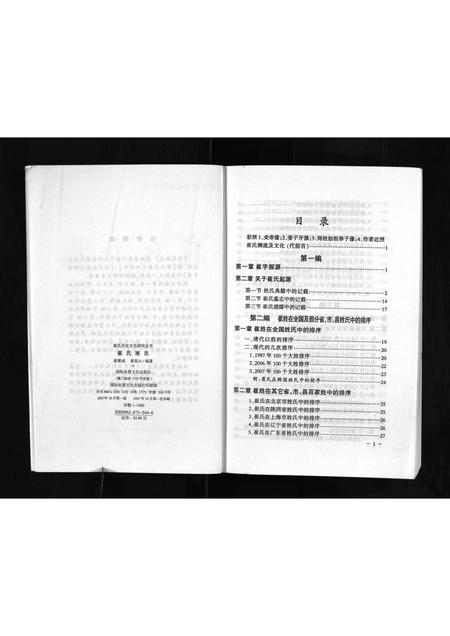 崔氏历史文化研究丛书
崔氏族志
国际炎黄文化出版社
2007年10月第一版 2007年10月第一次印刷
印数1-1000
ISBN962-875-544-6
目录
崔氏渊流及文化(代前言) 1
第一编
第一章 崔字探源 1
第二章 关于崔氏起源
第一节 姓氏典籍中的记载 2
第二节 崔氏墓志中的记载 14
第三节 崔氏谱牒中的记载 17
第二编 崔姓在全国及部分省、市、县姓氏中的排序
第一章 崔姓在全国姓氏中的排序
一、清代以前的排序 19
二、现代的几次排序 20
1、1987年100个大姓排序 21
2、2006年100个大姓排序 22
3、2007年100个大姓排序 23
附:崔氏在韩国姓氏中的排序 24
第二章 崔姓在其它省、市、县百家姓中的排序
1、崔氏在北京市姓氏中的排序 25
2、崔氏在陕西省姓氏中的排序 25
3、崔氏在上海市姓氏中的排序 26
4、崔氏在辽宁省姓氏中的排序 26
5、崔氏在广东省姓氏中的排序 27
- 1 -